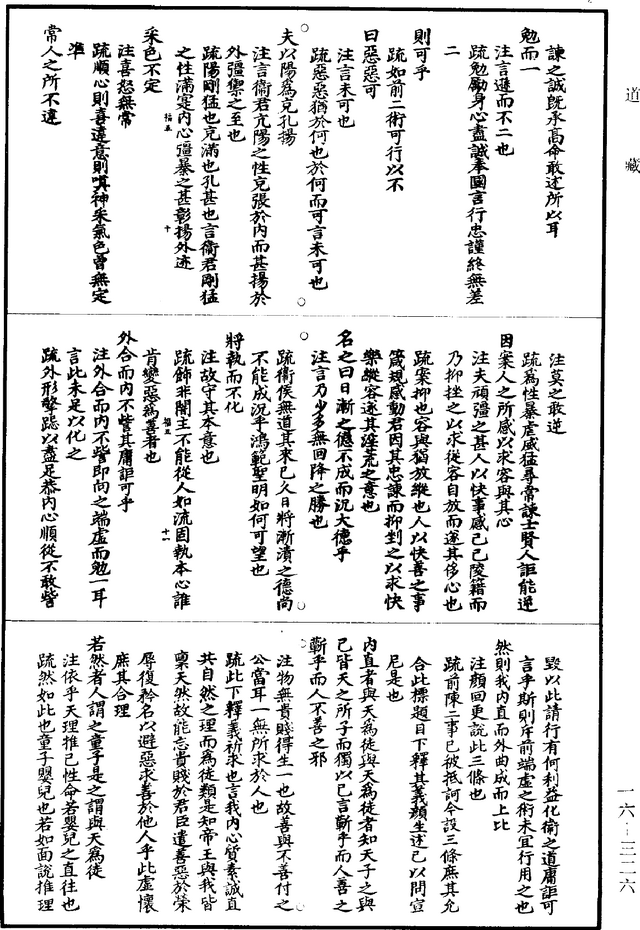 道藏
諫之誠既承高命敢述所以耳
勉而一
注言遜而不二也
疏勉勵身心盡誠奉國言行忠謹終無差
二
則可乎
疏如前二術可行以不
曰惡惡可
注言未可也
疏惡惡猶於何也於何而可言未可也
夫以陽為充孔揚
注言衛君亢陽之性充張於內而甚揚於
外彊禦之至也
疏陽剛猛也充滿也孔甚也言衛君剛猛
之性滿寔內心彊暴之甚彰揚外迹
福五 十
采色不定
注喜怒無常
疏順心則喜違意則嗔神采氣色曾無定
準
常人之所不違
注莫之敢逆
疏為性暴虐威猛尋常諫士賢人詎能逆
因案人之所感以求容與其心
注夫頑彊之甚人以快事感己己陵籍而
乃抑挫之以求從容自放而遂其侈心也
疏案抑也容與猶放縱也人以快善之事
箴規感動君因其忠諫而抑剉之以求快
樂縱容遂其淫荒之意也
名之曰日漸之德不成而況大德乎
注言乃少多無回降之勝也
疏衛侯無道其來已久日將漸漬之德尚
不能成況乎鴻範聖明如何可望也
將執而不化
注故守其本意也
疏飾非闇主不能從人如流固執本心誰
肯變惡為善者也
福五 十一
外合而內不訾其庸詎可乎
注外合而內不訾即向之端虛而勉一耳
言此未足以化之
疏外形擎跽以盡足恭內心順從不敢訾
毀以此請行有何利益化衛之道庸詎可
言乎斯則斥前端虛之術未宜行用之也
然則我內直而外曲成而上比
注顏回更說此三條也
疏前陳二事已被抵訶今設三條庶其允
合此標題目下釋其義顏生述己以問宣
尼是也
內直者與天為徒與天為徒者知天子之與
己皆天之所子而獨以己言蘄乎而人善之
蘄乎而人不善之邪
注物無貴賤得生一也故善與不善付之
公當耳一無所求於人也
疏此下釋義祈求也言我內心質素誠直
共自然之理而為徒類是知帝王與我皆
稟天然故能忘貴賤於君臣遣善惡於榮
辱復矜名以避惡求善於他人乎此虛懷
庶其合理
若然者人謂之童子是之謂與天為徒
注依乎天理推己性命若嬰兒之直往也
疏然如此也童子嬰兒也若如面說推理
一六-三二六